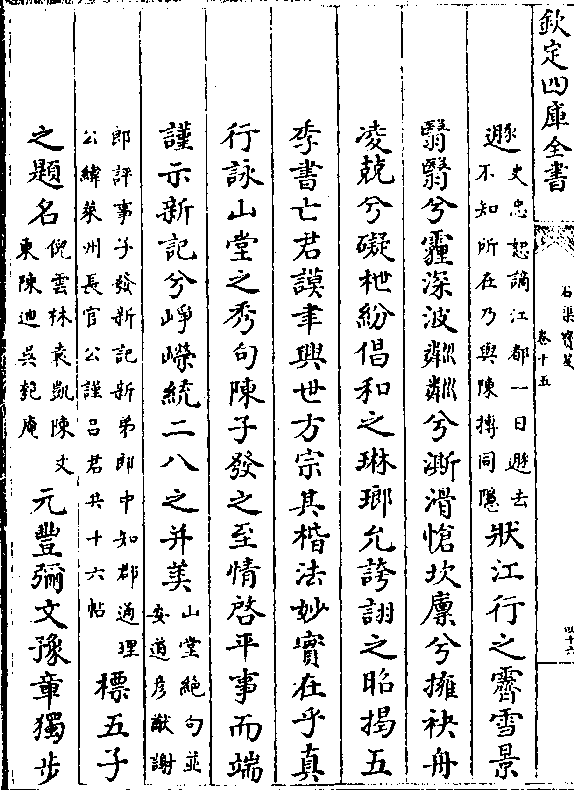 欽定四庫全書
石渠寶笈
卷十五
四十六
遯
史忠恕謫江都一日遊去
不知所在乃與陳摶同隱
狀江行之霽雪景
翳翳兮霾深波粼粼兮澌滑愴坎廩兮擁袂舟
凌兢兮礙枻紛倡和之琳瑯允誇詡之昭揭五
季書亡君謨聿興世方宗其楷法妙實在乎真
行詠山堂之秀句陳子發之至情啓平事而端
謹示新記兮崢嶸統二八之并美
山堂絶句並
安道彦猷謝
郎評事子發新記新弟郎中知郡通理
公綽萊州長官公謹吕君共十六帖
標五子
之題名
倪雲林袁凱陳文
東陳迪吳匏庵
元豐彌文豫章獨步